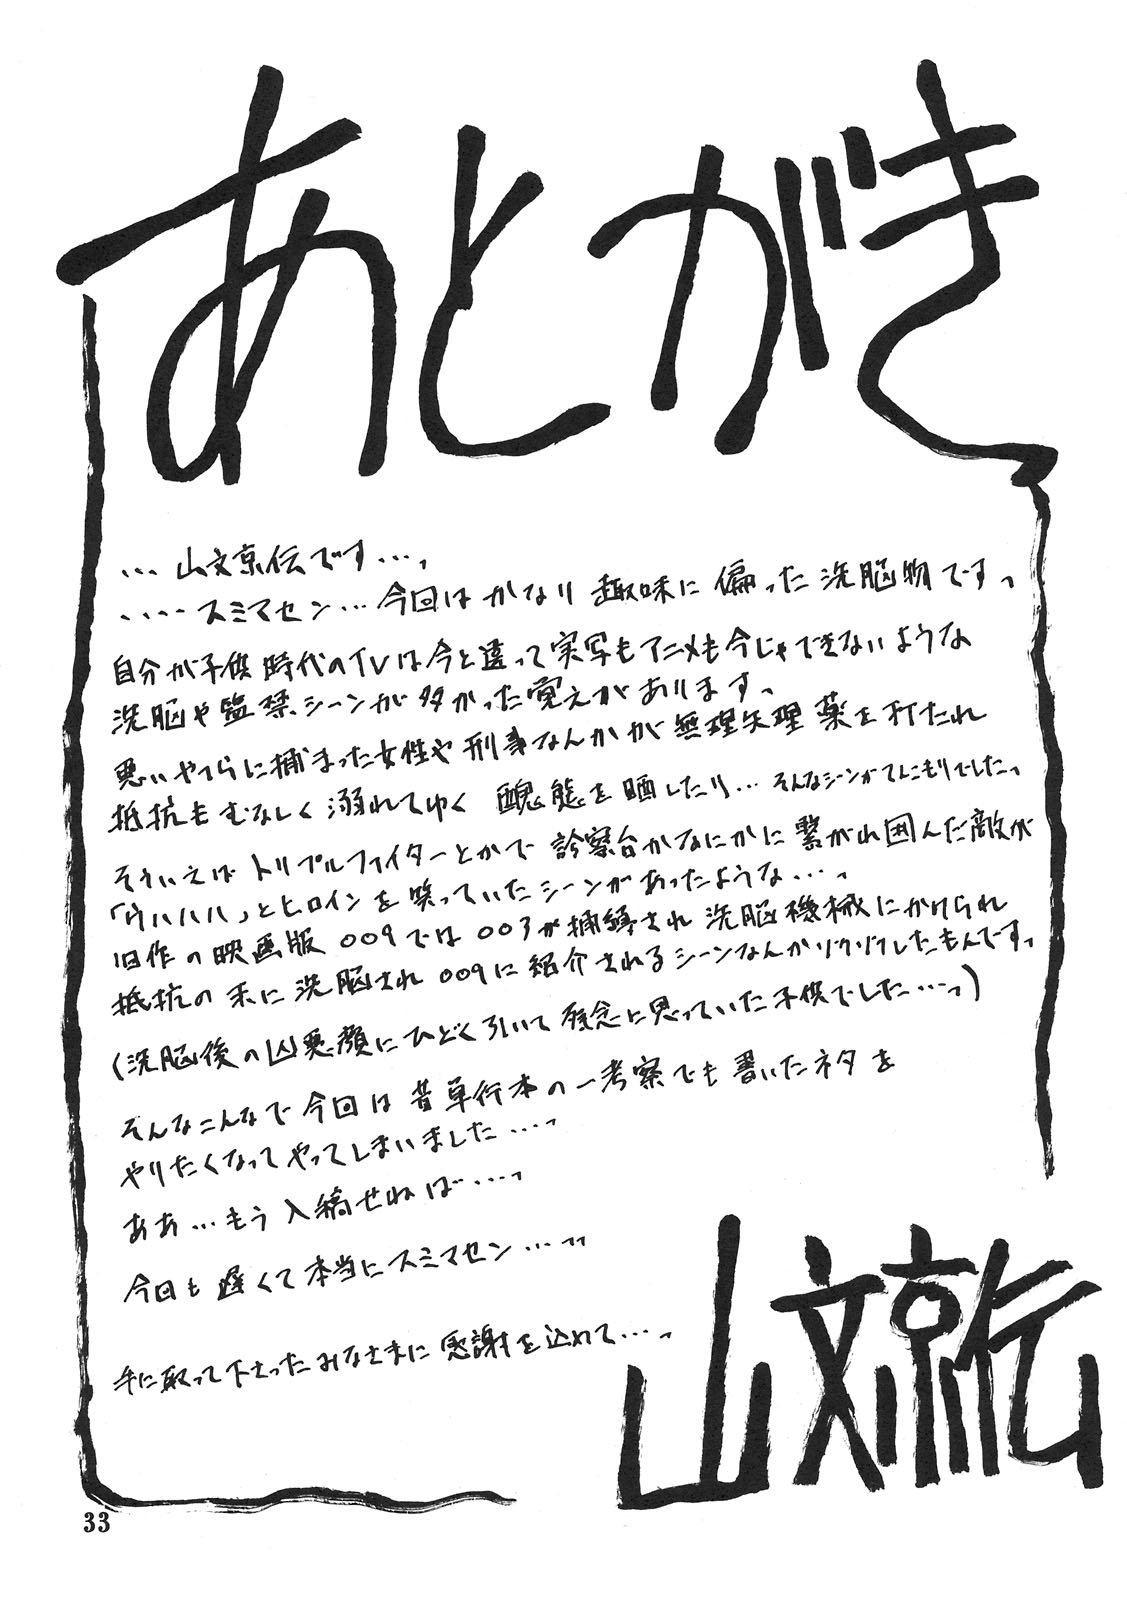 あとがき
…山文京伝です…っ
……スミマセン…今回はかなり趣味に偏った洗脳物ですっ
自分が子供時代のTVは今と違って実写もアニメも今じゃできないような
洗脳や監禁シーンが多かった覚えがありますっ
悪いやつらに捕まった女性や刑事なんかが無理矢理薬を打たれ
抵抗もむなしく溺れてゆく醜態を晒したり…そんなシーンがてんこもりでしたっ
そういえばトリプルファイターとかで診察台かなにかに繋がれ囲んだ敵が
「ウハハハ」とヒロインを笑っていたシーンがあったような…っ
旧作の映画版009では003が捕縛され洗脳機械にかけられ
抵抗の末に洗脳され009に紹介されるシーンなんかゾクゾクしたもんですっ
(洗脳後の凶悪顔にひどく引いて残念に思っていた子供でした…っ)
そんなこんなで今回は昔単行本の一考察でも書いたネタを
やりたくなってやってしまいました…っ
ああ…もう入稿せねば…っ
今回も遅くて本当にスミマセン…っっ
手に取って下さったみなさまに感謝を込めて…っ
山文京伝
33